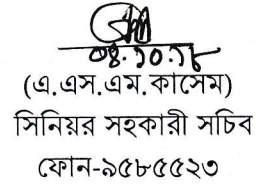 ০৪.১০.১৮
(এ.এস.এম.কাসেম)
সিনিয়র সহকারী সচিব
ফোন-৯৫৮৫৫২৩